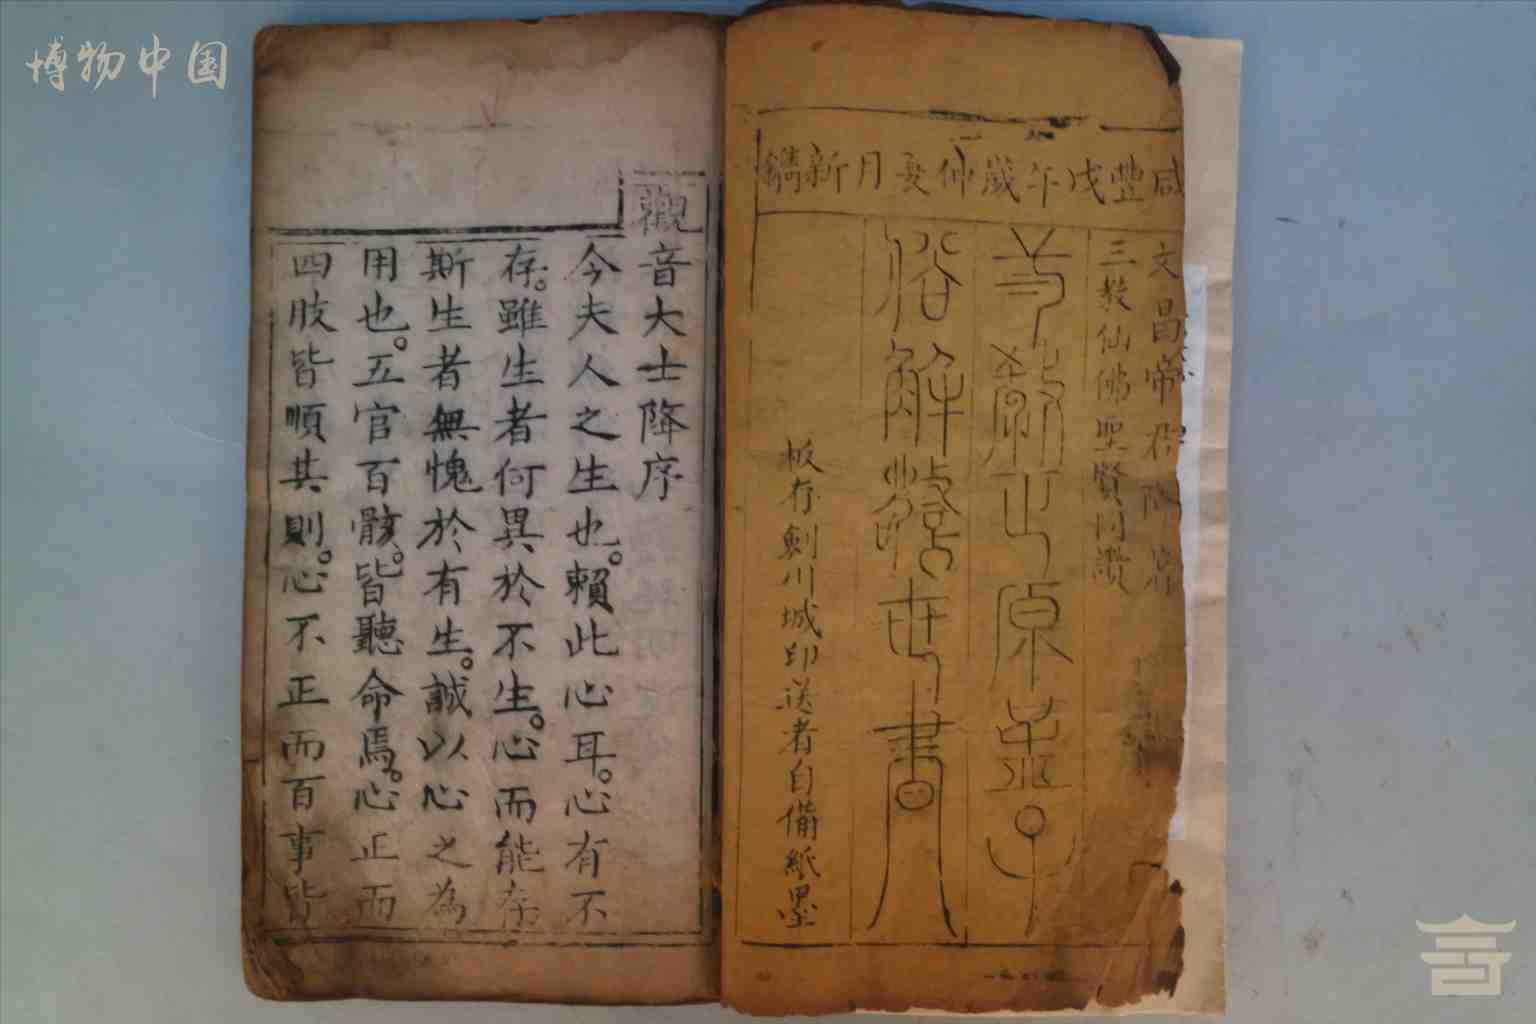 博物中国
咸豐戊午歲仲夏月新鐫
文昌帝君降著
三教仙佛聖賢同讚
原
俗解
世書
板存劍川城印送者自備紙墨
觀音大士降序
今夫人之生也。賴此心耳。心有不
存。雖生者何異於不生。心而能存
斯生者無愧於有生。誠以心之為
用也。五官百骸。皆聽命焉。心正而
四肢皆順其則。心不正而百事皆